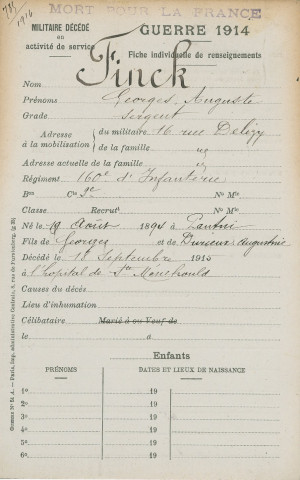 MORT POUR LA FRANCE
1916
MILITAIRE DÉCÉDÉ
en
activité de service
GUERRE 1914
Fiche individuelle de renseignements
Nom Finck
Prénoms Georges Auguste
Grade Sergent
Adresse à la mobilisation
du militaire 16 rue Delizy
de la famille
Adresse actuelle de la famille
Régiment 160e d'Infanterie
Bon Cie 2e No Mle
Classe Recrut No Mle
Né le 19 Août 1894 à Pantin
Fils de Georges et de Augustine
Décédé le 18 Septembre 1915
à l'hopital de Ste Menehould
Causes du décès
Lieu d'inhumation
Célibataire Marié à ou Veuf de
le à
Enfants
PRÉNOMS DATES ET LIEUX DE NAISSANCE
1o 19
2o 19
3o 19
4o 19
5o 19
6o 19